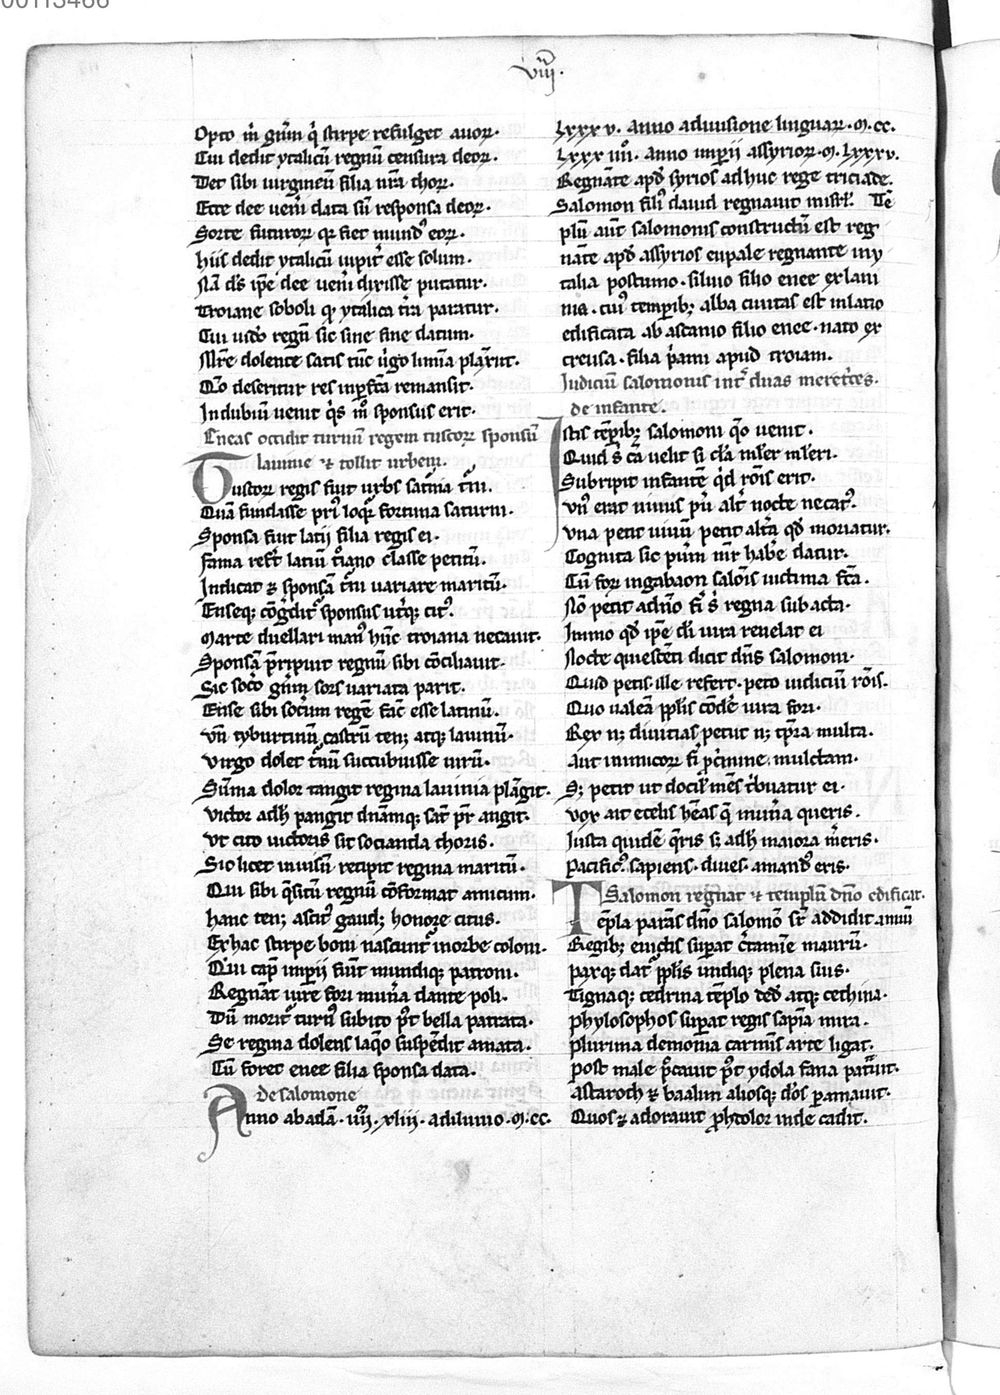 00113466
viij.
Opto m̄ gn̄m q̇ stirpe refulget auoꝝ.
Cui dedit ytalicū regnū censura deoꝝ.
Det sibi uirgineū filia nr̄a thoꝝ.
Ecce dee uen̄i data sūt responsa deoꝝ.
Sorte futuroꝝ qꝫ fiet mund' eoꝝ.
hiis dedit ytalicū iupit' esse solum.
Nā ds̄ ip̄e dee uen̄i dixisse putatur.
Troiane soboli qꝫ ytalica t'ra paratur.
Cui regnū sic sine fine datum.
Mr̄e dolente satis tūc u'go liminā plāxit.
Q̄o deseritur res inp̄fc̄a remansit.
Indubiū uenit q's m̊ sponsus erit.
Eneas occidit turnū regem tuscoꝝ sponsū
lauinie & tollit urbem.
Tuscoꝝ regis fuit urbs sat'nia t'ni.
Quā fundasse pri' loqr̄ fortuna saturni.
Sponsa fuit latij filia regis ei.
Fama refert latiū t'iano classe petitū.
Indicat & sponsā t'ni uariare maritū.
Enseqꝫ cōg'ditr̄ sponsus ut'qꝫ cit'.
Marte duellari man' hūc troiana necauit.
Sponsā p̄ripuit regnū sibi cōciliauit.
Sic soc'o gn̄m sors uariata parit.
Ense sibi soc'um regē fac̄ esse latinū.
Vn̄ tyburtinū castrū tenꝫ atqꝫ lauinū.
Virgo dolet t'nū succubuisse uirū.
Sūma dolor tangit regina lauinia plāgit.
Victor adh' pangit dn̄amqꝫ sat' pr̄ angit.
Vt cito uictoris sit socianda thoris.
Sic licet inuisū recipit regina maritū.
Qui sibi q'sitū regnū cōformat amicum.
hanc tenꝫ ascit' gaudꝫ honore citus.
Ex hac stirpe boni nascunt' in orbe coloni.
Qui cap̄ imp̄ii fiūt mundiqꝫ patroni.
Regnāt iure fori mun̄a dante poli.
Dū morit' turn' subito p̄t bella patrata.
Se regina dolens laq̊o suspēdit amata.
Cū foret enee filia sponsa data.
de salomone
Anno ab adā. iiij. xliii. a diluuio. M. cc.
lxxx v. anno a diuisione linguaꝝ. M. cc.
lxxx iiij. anno imp̄ii assyrioꝝ. M. lxxxv.
Regnāte apd̄ syrios adhuc rege triciade.
Salomon fili' dauid regnauit in isrl̄. Tē
plū aut̄ salomonis constructū est reg
nāte apd̄ assyrios eupale regnante in y
talia postumo. siluio filio enee ex laui
nia. cui' tempibꝫ alba ciuitas est in latio
edificata ab ascanio filio enee. nato ex
creusa. filia p'ami apud troiam.
Iudiciū salomonis int' duas meret'ces.
de infante.
Istis tēp̄ibꝫ salomoni q̄o uenit.
Quid s' cā uelit si clā mlier ml'ieri.
Subripit infantē q'd rōis erit.
Vn' erat uiuus pu' alt' nocte necat'.
Vna petit uiuū petit alt'a qd̄ moriatur.
Cognita sic pu'um mr̄ habe' datur.
Cū foꝝ in gabaon salōis uictima fc̄a.
Nō petit a dn̄o fi' s' regna subacta.
Immo qd̄ ip̄e di' iura reuelat ei
Nocte quiescēti dicit dn̄s salomoni.
Quid petis ille refert. peto iudiciū rōis.
Quo ualeā pplis cōde' iura fori.
Rex nꝫ diuitias petiit nꝫ tp̄ra multa.
Aut inimicoꝝ fi' p' c'mine mulctam.
Sꝫ petit ut docil' mēs t'buatur ei.
Vox ait e celis hēas q̄ mun̄a queris.
Iusta quidē q'ris sꝫ adh' maiora m'eris.
Pacific' sapiens. diues. amand' eris.
Salomon regnat & templū dn̄o edificat.
Tēpla parās dn̄o salomō addidit annū
Regibꝫ eiu'ctis sup̄at c'tamīe maurū.
Paxqꝫ dat' pplis undiqꝫ plena suis.
Tignaqꝫ cedrina tēplo ded' atqꝫ cethina.
Phylosophos sup̄at regis sap̄ia mira.
Plurima demonia carmīs arte ligat.
Post male p̄cauit p̄t ydola fana pat'uit.
Astaroch & baalim aliosqꝫ do's p̄amauit.
Quos & adorauit p̄htolor inde cadit.